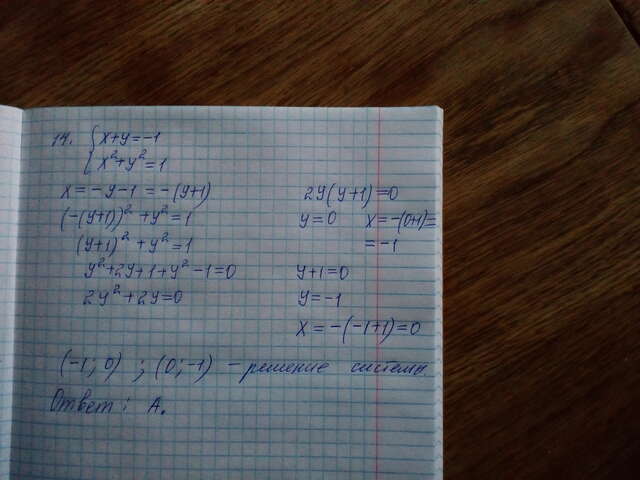 14. { x+y=-1
x²+y²=1
x = -y-1 = -(y+1)
(-(y+1))² + y² = 1
(y+1)² + y² = 1
y²+2y+1+y²-1=0
2y²+2y=0
2y(y+1)=0
y=0 x=-(0+1)=
=-1
y+1=0
y=-1
x = -(-1+1)=0
(-1; 0) ; (0; -1) - решение системы.
Ответ: А.